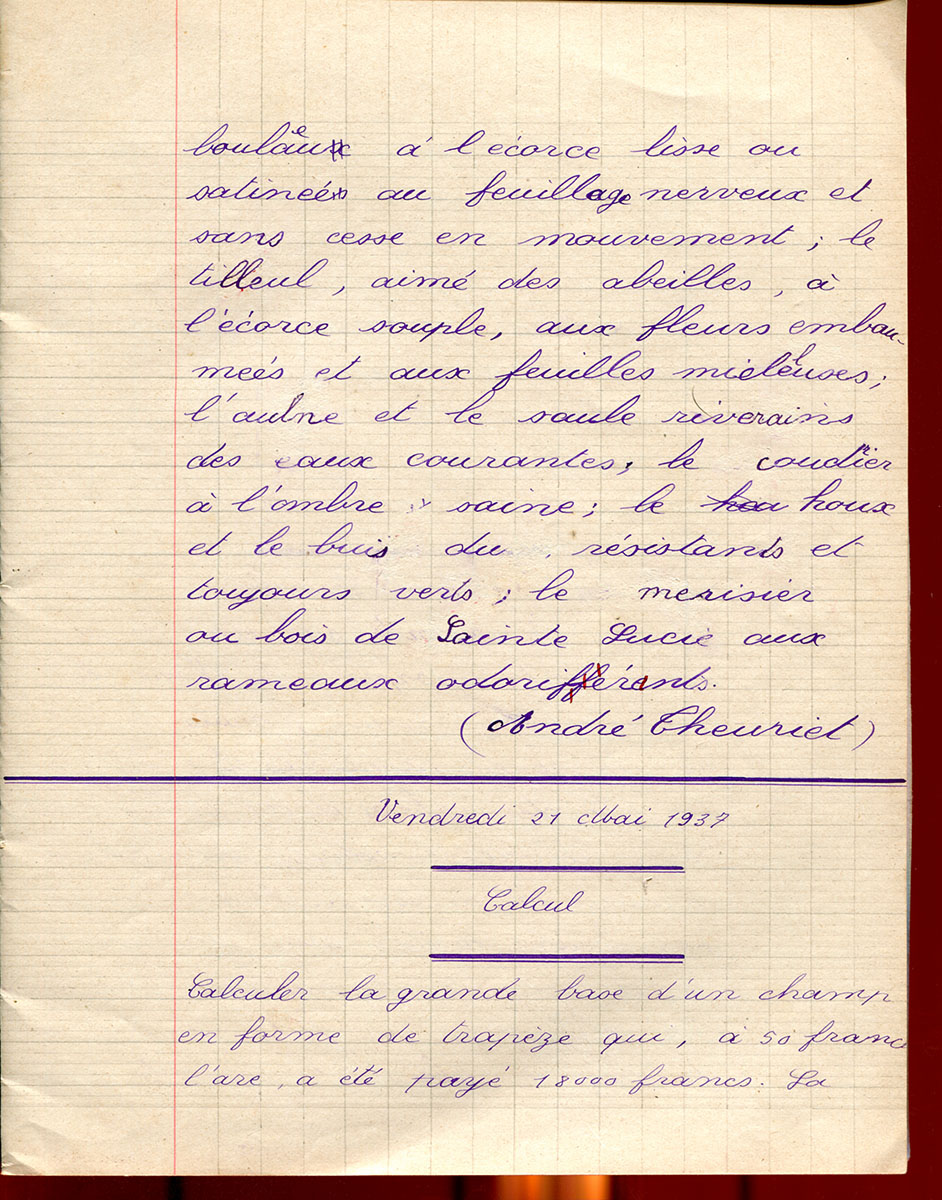 bouleau à l'écorce lisse ou
satinée au feuillage nerveux et
sans cesse en mouvement ; le
tilleul, aimé des abeilles, à
l'écorce souple, aux fleurs embau-
mées et aux feuilles mielleuses ;
l'aulne et le saule riverains
des eaux courantes, le coudrier
à l'ombre saine ; le houx
et le buis du résistants et
toujours verts ; le merisier
ou bois de Sainte Lucie aux
rameaux odoriférants.
(André Theuriet)
Vendredi 21 Mai 1937
Calcul
Calculer la grande base d'un champ
en forme de trapèze qui, à 50 francs
l'are, a été payé 18000 francs. La